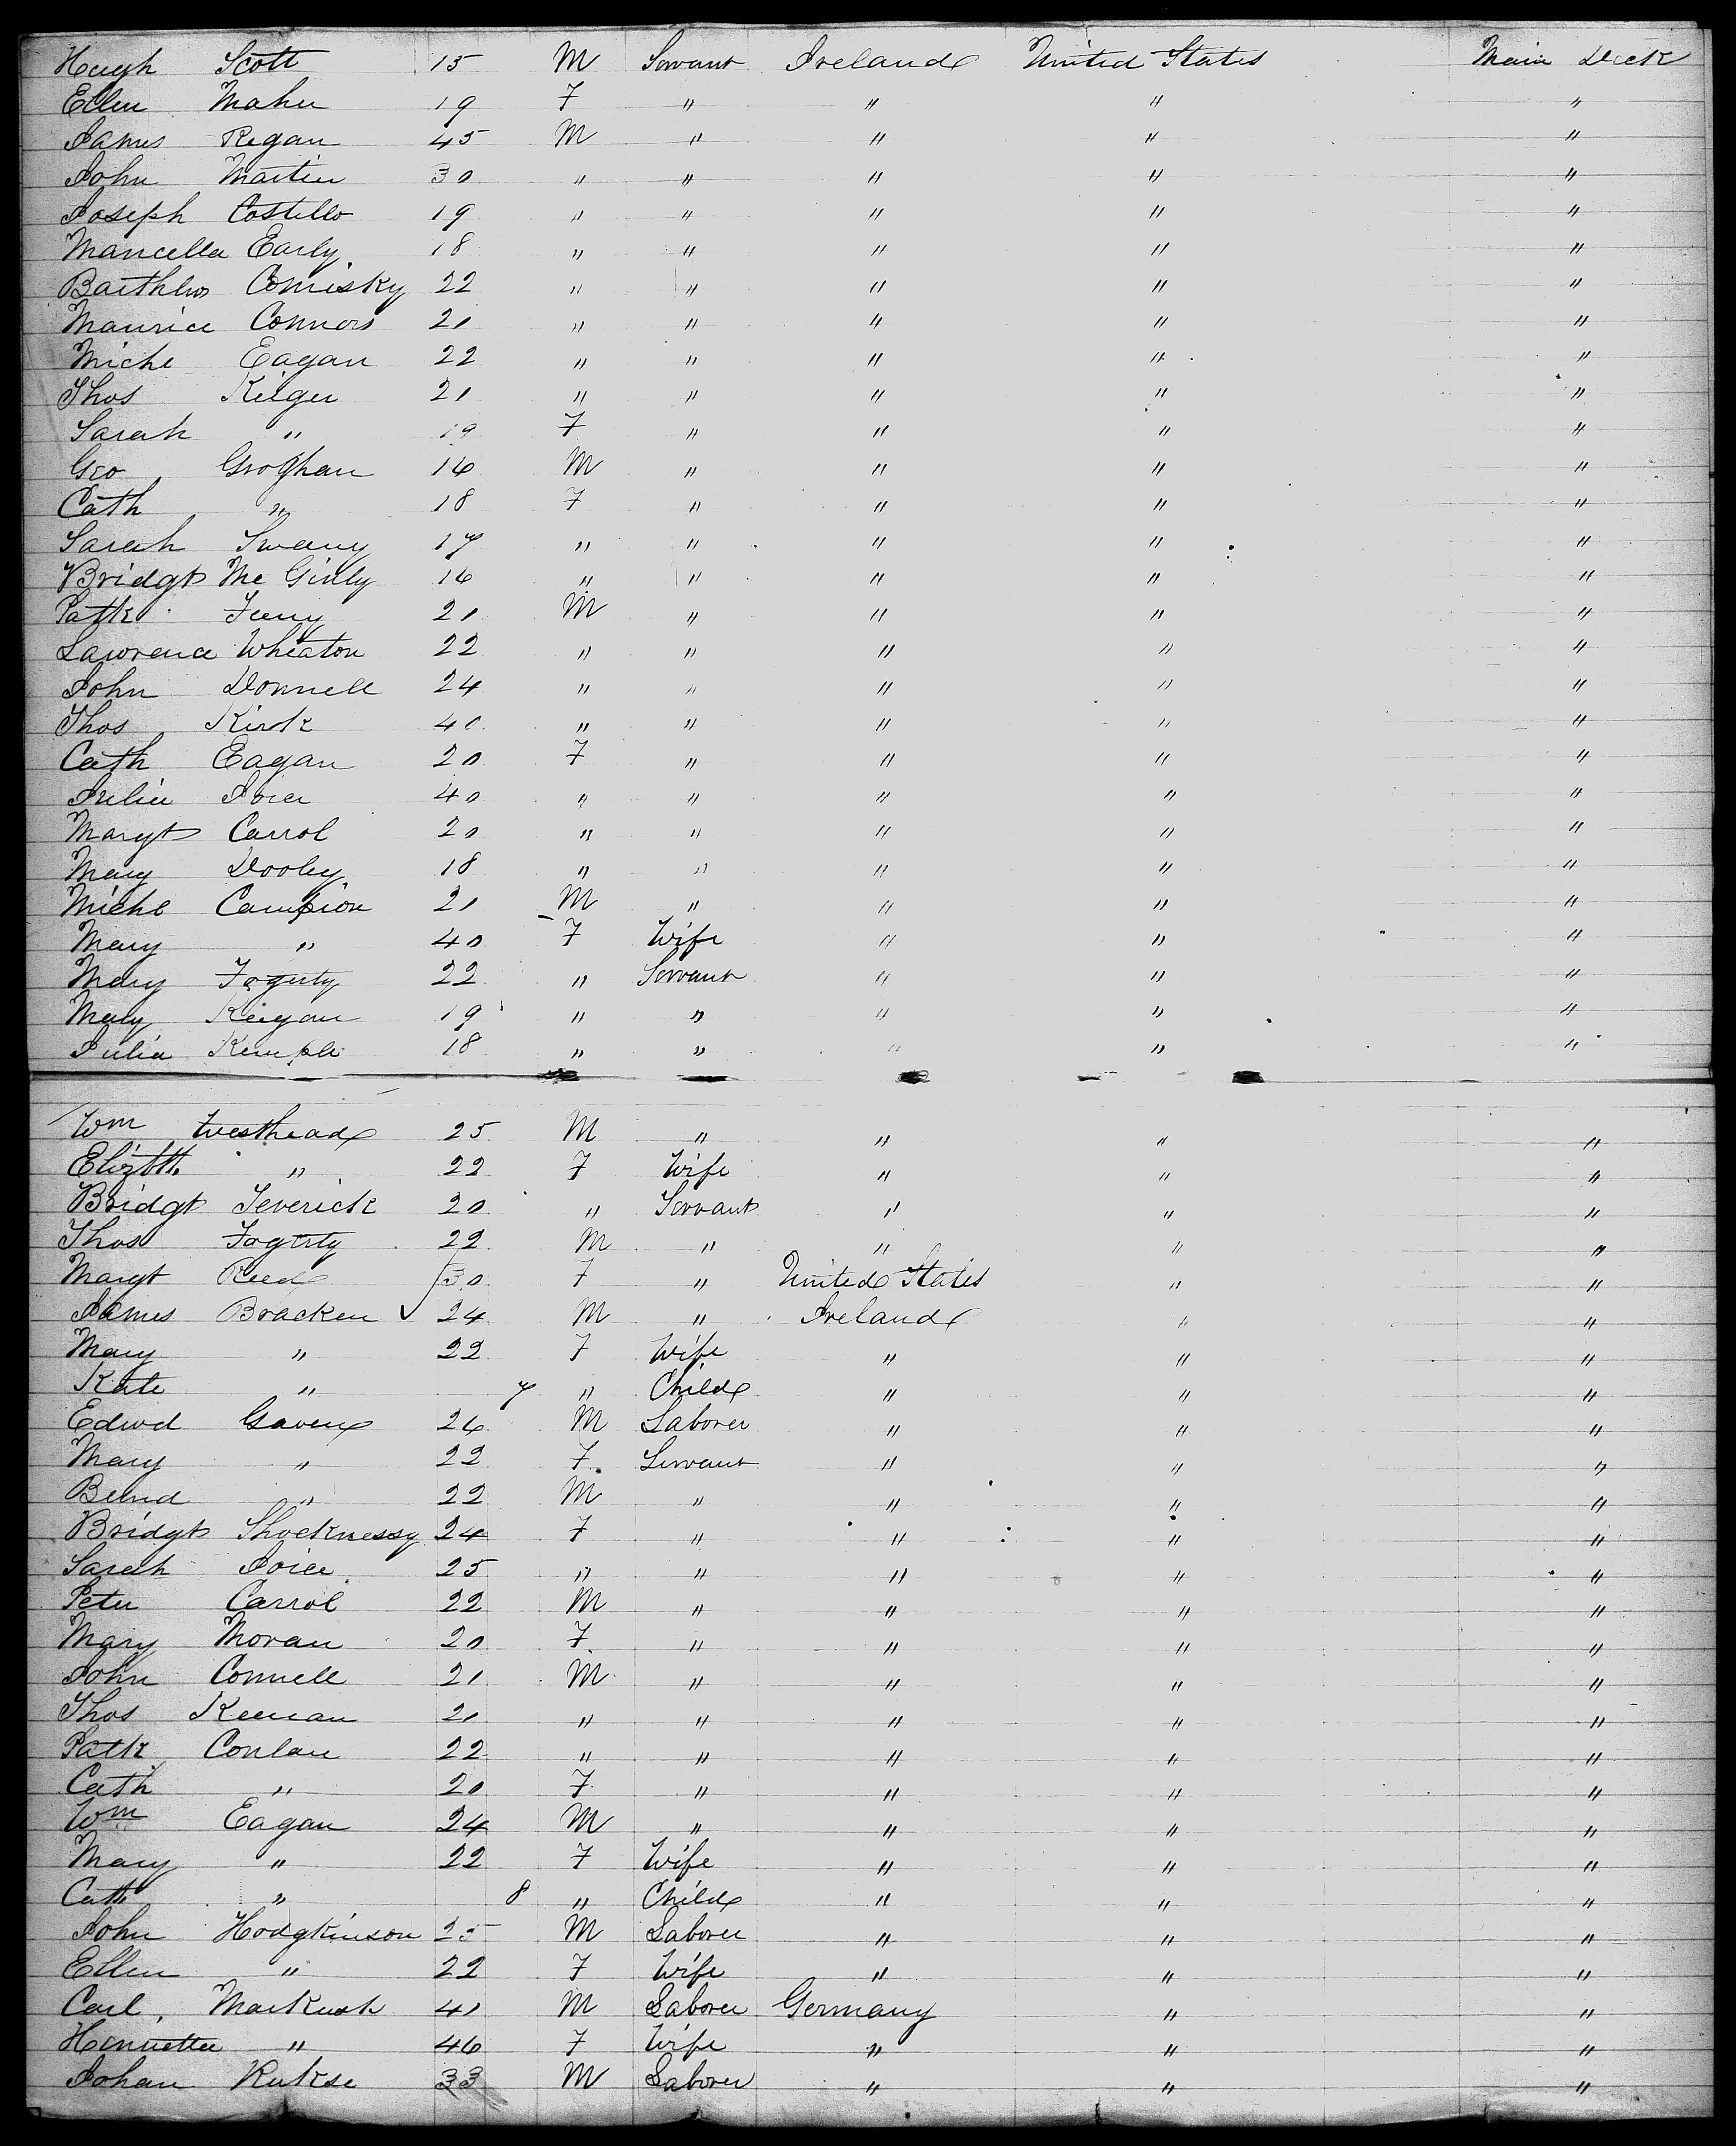 Hugh Scott 15 M Servant Ireland United States Main Deck
Ellen Maher 19 F " " " "
James Regan 45 M " " " "
John Martin 30 " " " " "
Joseph Costello 19 " " " " "
Mancella Early 18 " " " " "
Barthlw Comisky 22 " " " " "
Maurice Connors 21 " " " " "
Michl Eagan 22 " " " " "
Thos Kilger 21 " " " " "
Sarah " 19 F " " " "
Geo Groghan 16 M " " " "
Cath " 18 F " " " "
Sarah Sweeny 17 " " " " "
Bridgt Mc Ginly 16 " " " " "
Patk Feeny 21 M " " " "
Lawrence Wheaton 22 " " " " "
John Donnell 24 " " " " "
Thos Kirk 40 " " " " "
Cath Eagan 20 F " " " "
Julia Joice 40 " " " " "
Margt Carrol 20 " " " " "
Mary Dooley 18 " " " " "
Michl Campion 21 M " " " "
Mary " 40 F Wife " " "
Mary Fogerty 22 " Servant " " "
Mary Keigan 19 " " " " "
Julia Kemple 18 " " " " "
Wm Westhead 25 M " " " "
Elizth " 22 F Wife " " "
Bridgt Severick 20 " Servant " " "
Thos Fogerty 22 M " " " "
Margt Reed 30 F " United States " "
James Bracken 24 M " Ireland " "
Mary " 22 F Wife " " "
Kate " 7 " Child " " "
Edwd Gaven 26 M Laborer " " "
Mary " 22 F Servant " " "
Bernd " 22 M " " " "
Bridgt Shocknessy 24 F " " " "
Sarah Joice 25 " " " " "
Peter Carrol 22 M " " " "
Mary Moran 20 F " " " "
John Connell 21 M " " " "
Thos Keenan 21 " " " " "
Patk Conlan 22 " " " " "
Cath " 20 F " " " "
Wm Eagan 24 M " " " "
Mary " 22 F Wife " " "
Cath " 8 " Child " " "
John Hodgkinson 25 M Laborer " " "
Ellen " 22 F Wife " " "
Carl 41 M Laborer Germany " "
Henrietta " 46 F Wife " " "
Johan Rukse 33 M Laborer " " "